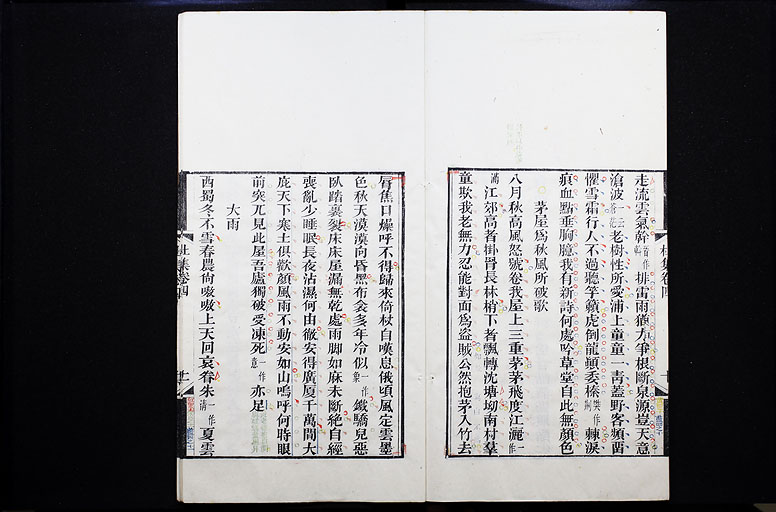 走流雲氣幹一作排雷雨猶力爭根斷泉源豈天意
滄波老樹性所愛浦上童童一青蓋野客頻留
懼雪霜行人不過聽竽籟虎倒龍顛委榛棘淚
痕血點垂胸臆我有新詩何處吟草堂自此無顏色
茅屋為秋風所破歌
八月秋高風怒號卷我屋上三重茅茅飛度江灑一作
滿江郊高者掛罥長林梢下者飄轉沈塘坳南村羣
童欺我老無力忍能對面為盜賊公然抱茅入竹去
脣焦口燥呼不得歸來倚杖自嘆息俄頃風定雲墨
色秋天漠漠向昏黑布衾多年冷似一作鐵驕兒惡
臥踏裏裂床床屋漏無乾處雨脚如麻未斷絕自經
喪亂少睡眠長夜沾濕何由徹安得廣厦千萬間大
庇天下寒士俱歡顏風雨不動安如山嗚呼何時眼
前突兀見此屋吾廬獨破受凍死一作意亦足
大雨
西蜀冬不雪春農尚嗷嗷上天回哀眷朱一作清夏雲
杜集卷四
杜集卷四